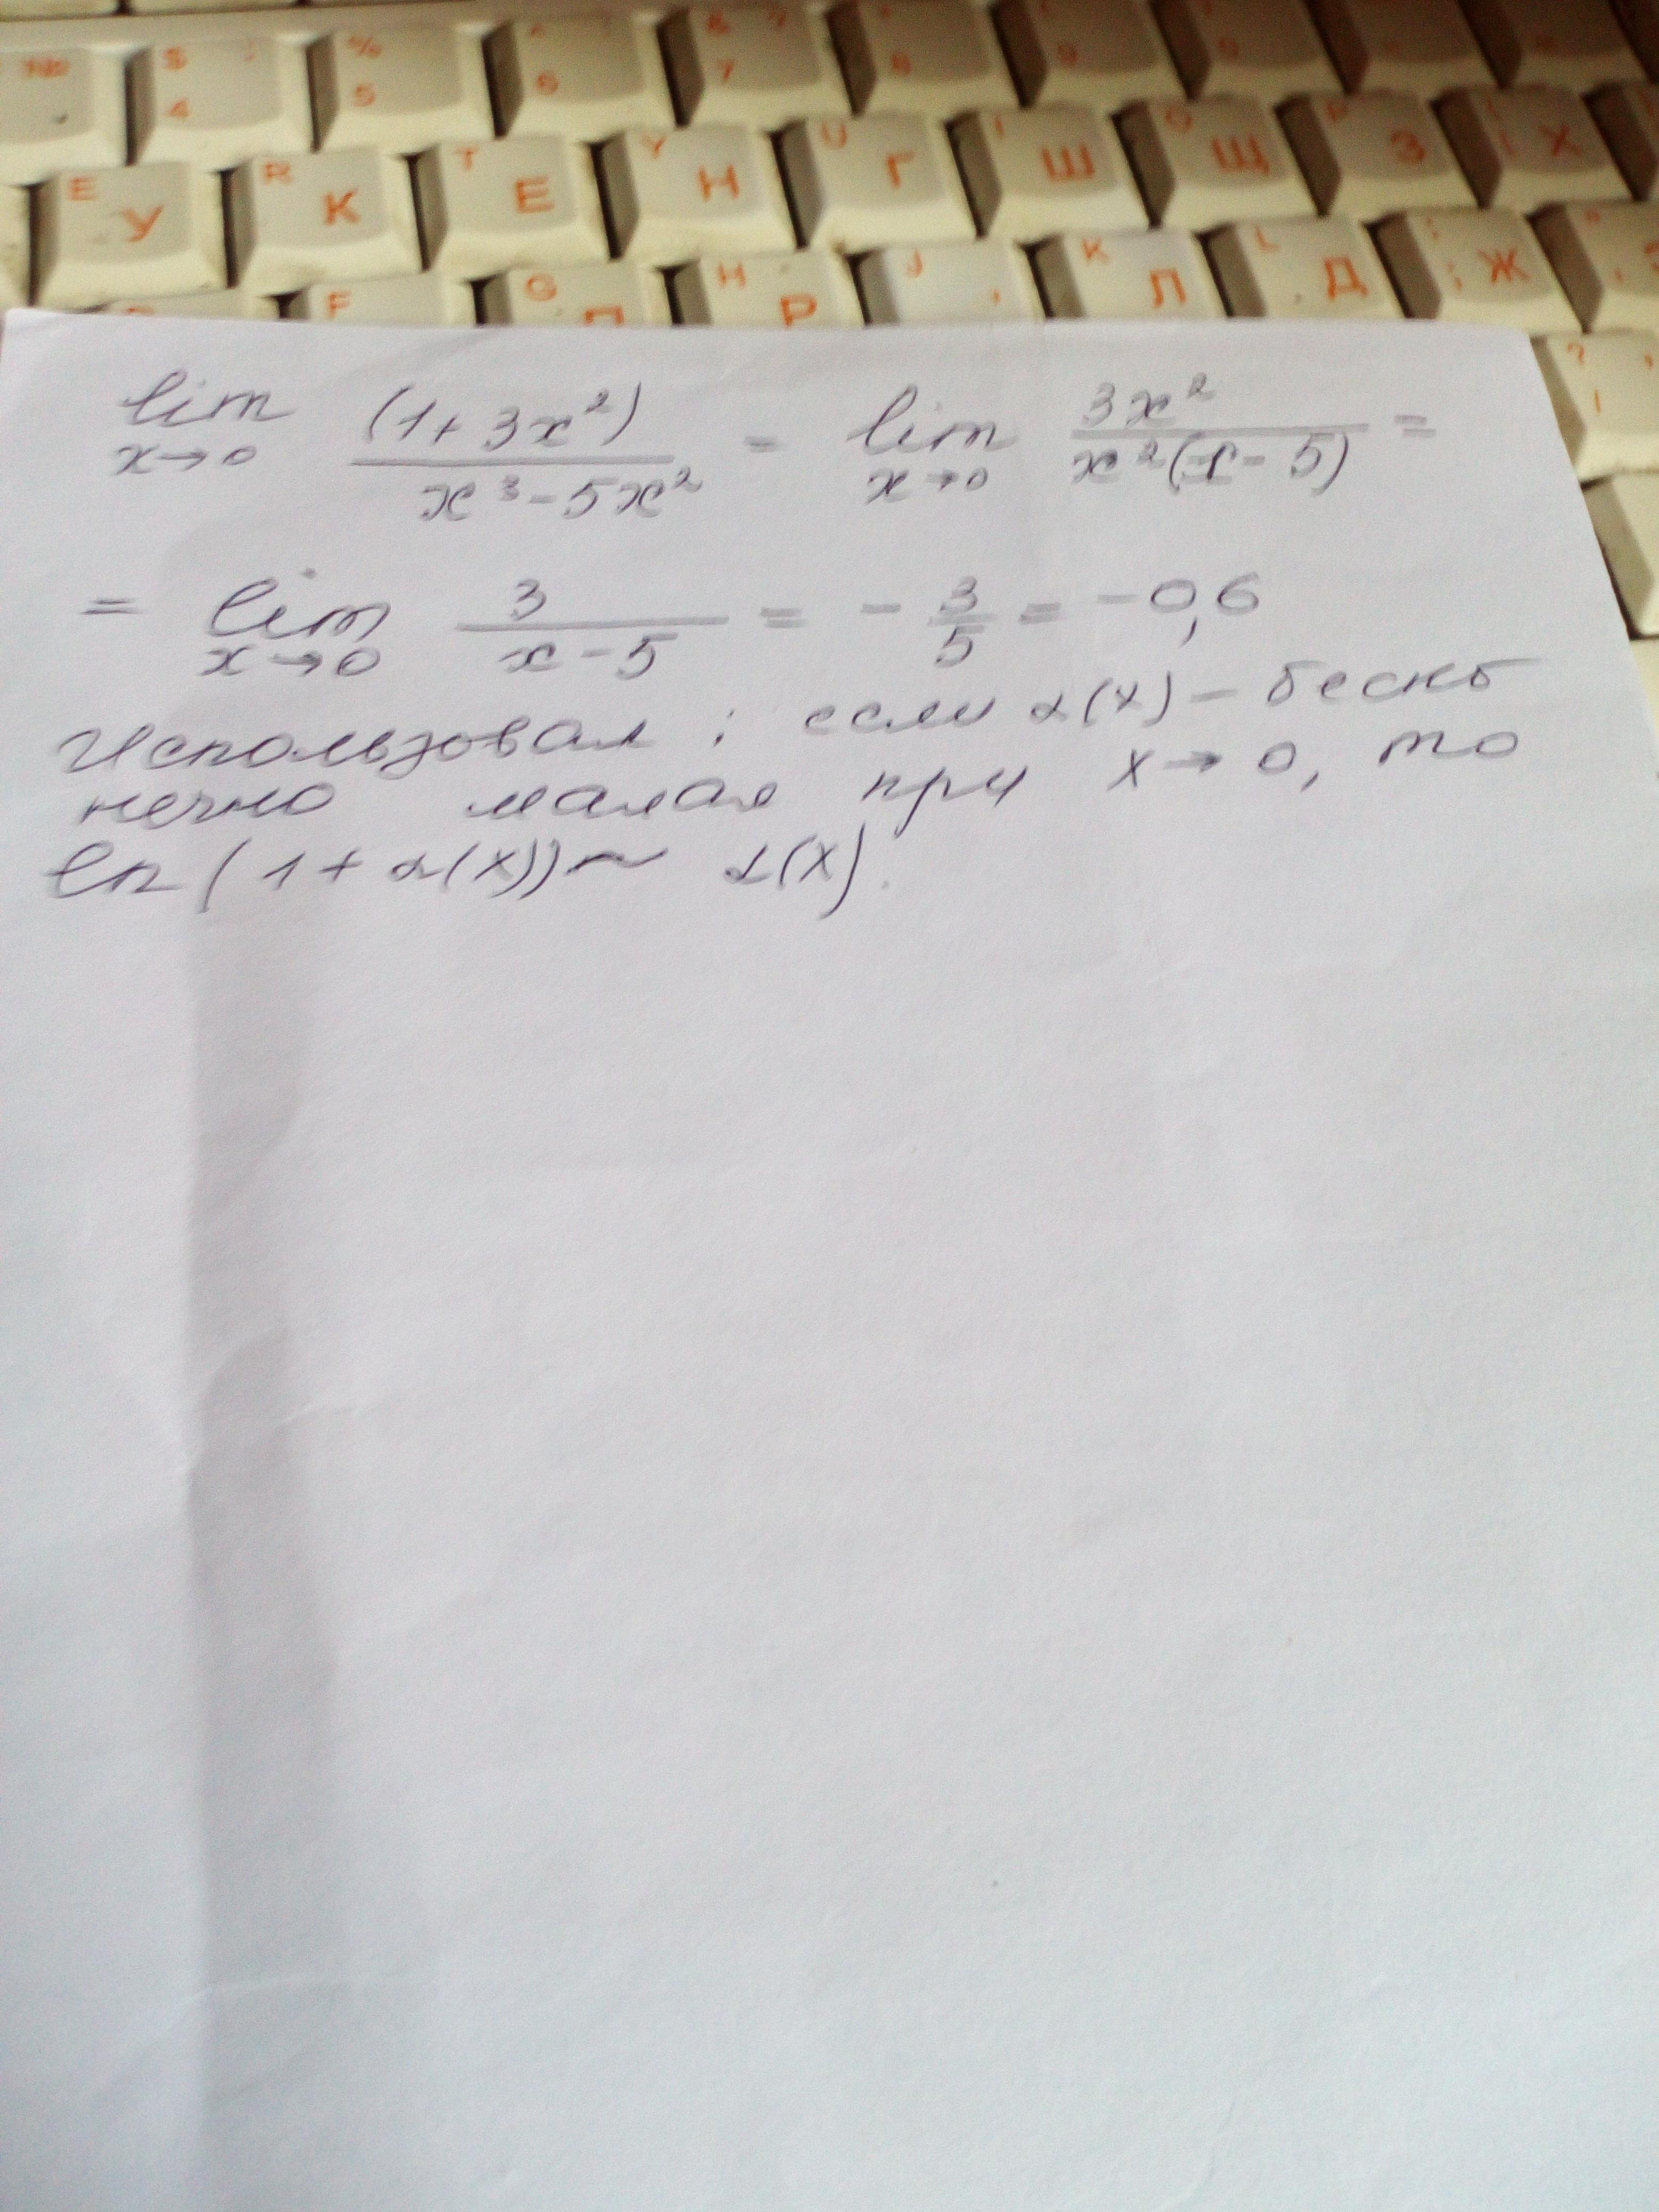 № $ ; 4 % 5 6 & 7 8 9 0
E У R К T Е Y Н U Г I Ш O Щ P З [ Х
F G П H Р J K Л L Д ; Ж
lim x→0 (1+3x²) / x³-5x² = lim x→0 3x² / x²(x-5) =
= lim x→0 3 / x-5 = - 3/5 = -0,6
Использовал: если α(x) - беско
нечно малая при x→0, то
ln(1+α(x)) ~ α(x).